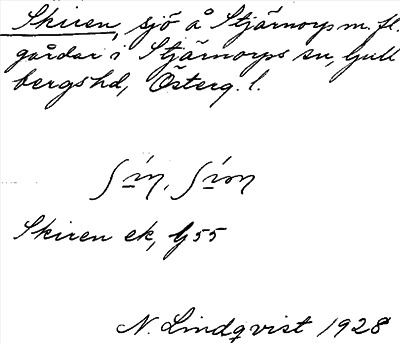 Skiren, sjö å Stjärnorps m. fl.
gårdar i Stjärnorps sn, Gull
bergshd, Österg. l.
Skiren ek, G 55
N. Lindqvist 1928